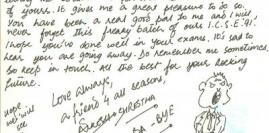 of yours. It gives me a great pleasure to do so.
You have been a real good pal to me and I will
never forget this freaky batch of ours I.C.S.E. 91.
I hope you've done well in your exams. It's sad to
hear you are going away. Do remember me sometimes,
& keep in touch. All the best for your rocking
future.
Love Always,
a friend 4 all season,
SHRESTHA
BYE
hope
we will
see